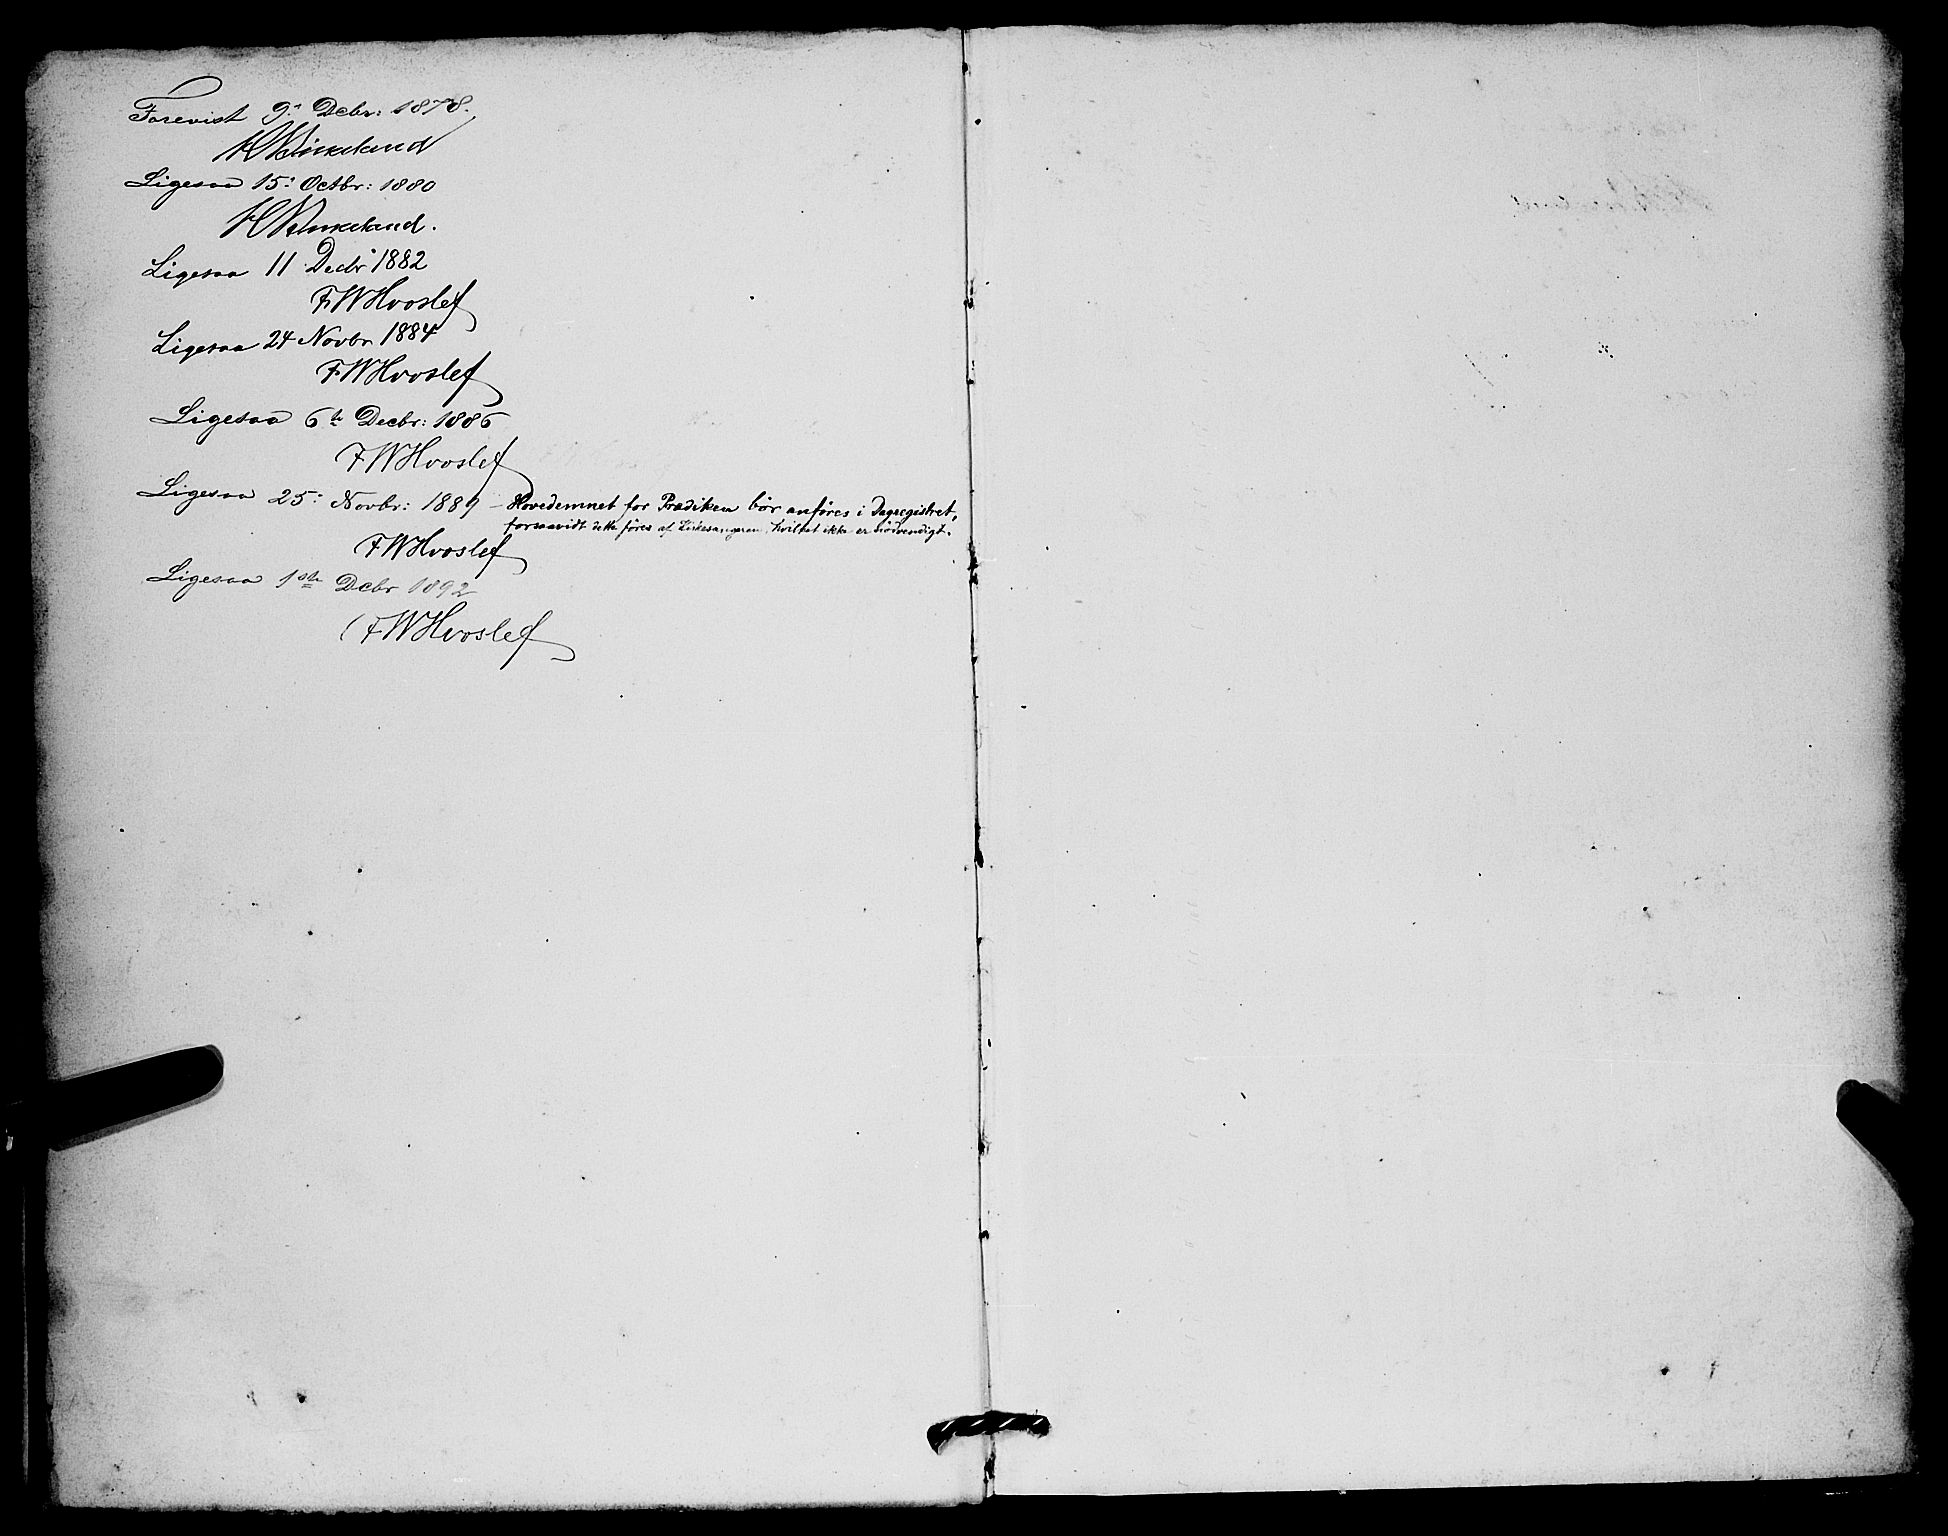 Forevist 9: Decbr: 1878.
Ligesaa 15: Octbr: 1880
Ligesaa 11 Decbr 1882
FWHvoslef
Ligesaa 24 Novbr 1884
FWHvoslef
Ligesaa 6te Decbr: 1886
FWHvoslef
Ligesaa 25: Novbr: 1889 - Hovedemnet for Prædiken bör anföres i Dagsregistret,
forsaavidt dette föres af Kirkesangeren, hvilket ikke er nödvendigt.
FWHvoslef
Ligesaa 1ste Decbr 1892
FWHvoslef